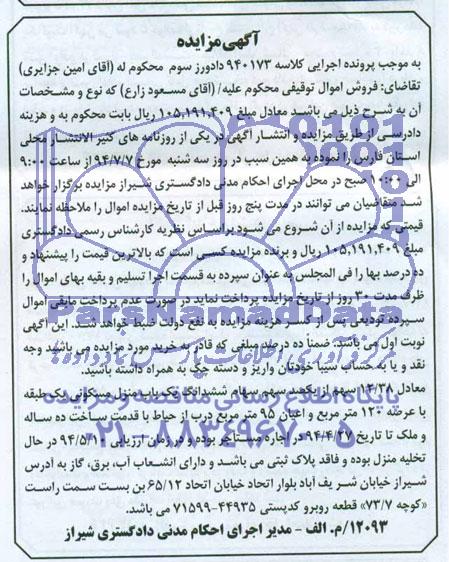 آگهی مزایده
به موجب پرونده اجرایی کلاسه ۹۴۰۱۷۳ دادورز سوم محکوم له (آقای امین جزایری)
تقاضای: فروش اموال توقیفی محکوم علیه/ (آقای مسعود زارع) که نوع و مشخصات
آن به شرح ذیل می باشد معادل مبلغ ۱۰۵,۱۹۱,۴۰۹ ریال بابت محکوم به و هزینه
دادرسی از طریق مزایده و انتشار آگهی در یکی از روزنامه های کثیر الانتشار محلی
استان فارس را نموده به همین سبب در روز سه شنبه مورخ ۹۴/۷/۷ از ساعت ۹:۰۰
الی ۱۰:۰۰ صبح در محل اجرای احکام مدنی دادگستری شیراز مزایده برگزار خواهد
شد متقاضیان می توانند در مدت پنج روز قبل از تاریخ مزایده اموال را ملاحظه نمایند.
قیمتی که مزایده از آن شروع می شود براساس نظریه کارشناس رسمی دادگستری
مبلغ ۱۰۵,۱۹۱,۴۰۹ ریال و برنده مزایده کسی است که بالاترین قیمت را پیشنهاد و
ده درصد بها را فی المجلس به عنوان سپرده به قسمت اجرا تسلیم و بقیه بهای اموال را
ظرف مدت ۳۰ روز از تاریخ مزایده پرداخت نماید در صورت عدم پرداخت مابقی اموال
سپرده تودیعی پس از کسر هزینه مزایده به نفع دولت ضبط خواهد شد. این آگهی
نوبت اول می باشد. ضمنا ده درصد مبلغی که قادر به خرید مورد مزایده می باشد وجه
نقد و یا به حساب سیبا خودتان واریز و دسته چک به همراه داشته باشید.
معادل ۱۲/۳۸ سهم از یکصد سهم سهام ششدانگ یک باب منزل مسکونی یک طبقه
با عرصه ۱۲۰ متر مربع و اعیان ۹۵ متر مربع درب از حیاط با قدمت ساخت ده ساله
و ملک تا تاریخ ۹۴/۴/۲۷ در اجاره مستاجر بوده و در زمان ارزیابی ۹۴/۵/۱۰ در حال
تخلیه منزل بوده و فاقد پلاک ثبتی می باشد و دارای انشعاب آب، برق، گاز به آدرس
شیراز خیابان شریف آباد بلوار اتحاد خیابان اتحاد ۶۵/۱۲ بن بست سمت راست
«کوچه ۷۳/۷» قطعه روبرو کدپستی ۴۴۹۳۵-۷۱۵۹۹ می باشد.
۱۲۰۹۳/م. الف - مدیر اجرای احکام مدنی دادگستری شیراز
ParsNamadData
پایگاه اطلاع رسانی مناقصات و مزایده
۰۲۱-۸۸۳۴۹۶۷۰-۵